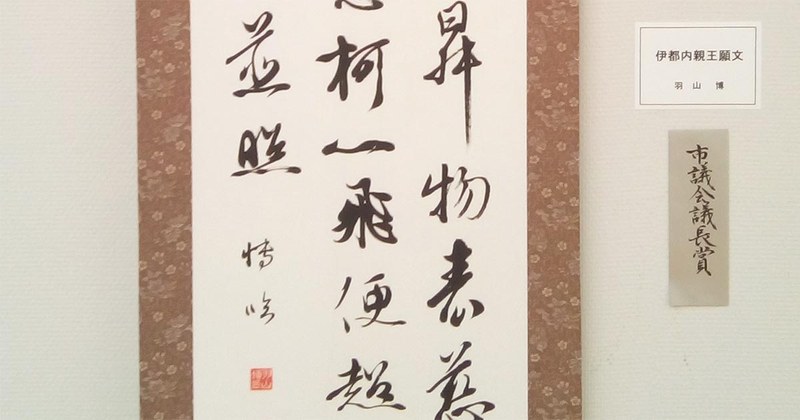 昇物表慈
柯一飛便超
並照
博臨
伊都内親王願文
羽山 博
市議会議長賞